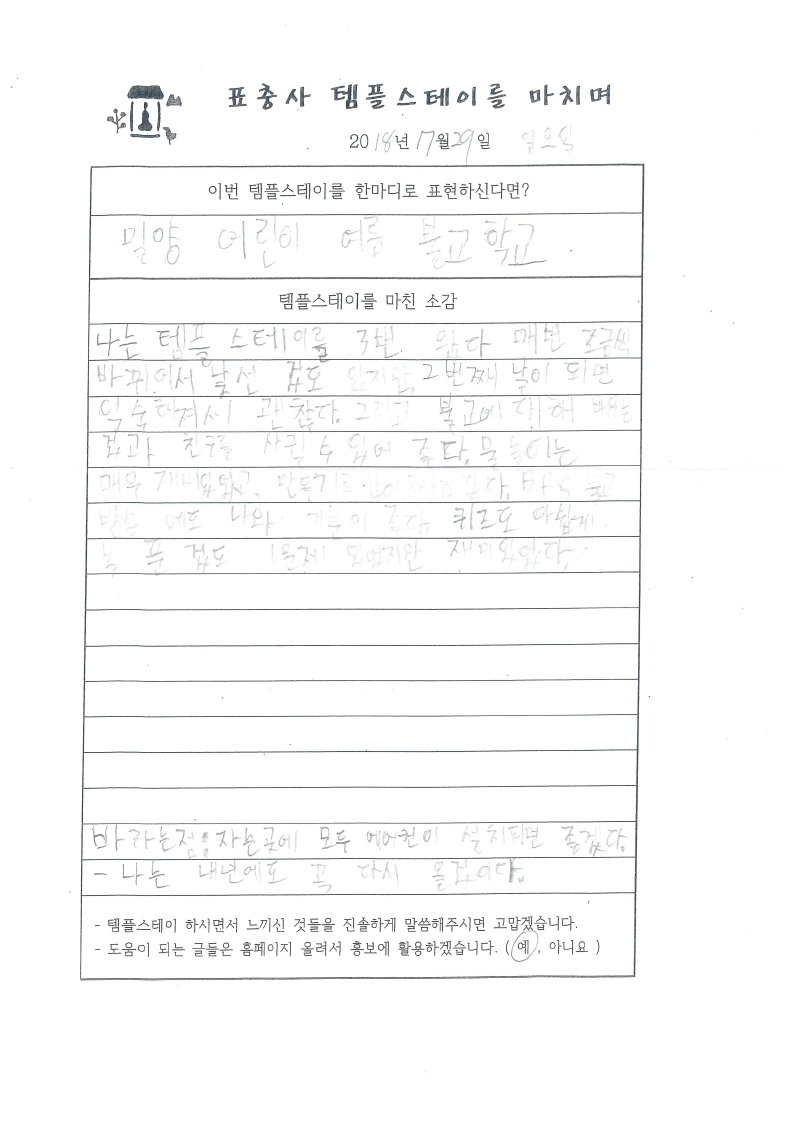 표충사 템플스테이를 마치며
2018년 7월 29일 일요일
이번 템플스테이를 한마디로 표현하신다면?
밀양 어린이 여름 불교학교
템플스테이를 마친 소감
나는 템플 스테이를 3번 왔다 매번 조금씩
바뀌어서 낯선 점도 있지만 2번째 날이 되면
익숙해져서 괜찮다. 그리고 불교에 대해 배우는
점과 친구를 사귈 수 있어 좋다. 물놀이는
매우 재미있었고, 만들기도
나와 기분이 좋다 퀴즈도 아쉽게
못 푼 점도 1문제 있었지만 재미있었다.
바라는점: 자는곳에 모두 에어컨이 설치되면 좋겠다.
- 나는 내년에도 꼭 다시 올것이다.
- 템플스테이 하시면서 느끼신 것들을 진솔하게 말씀해주시면 고맙겠습니다.
- 도움이 되는 글들은 홈페이지 올려서 홍보에 활용하겠습니다. ( 예 , 아니요 )